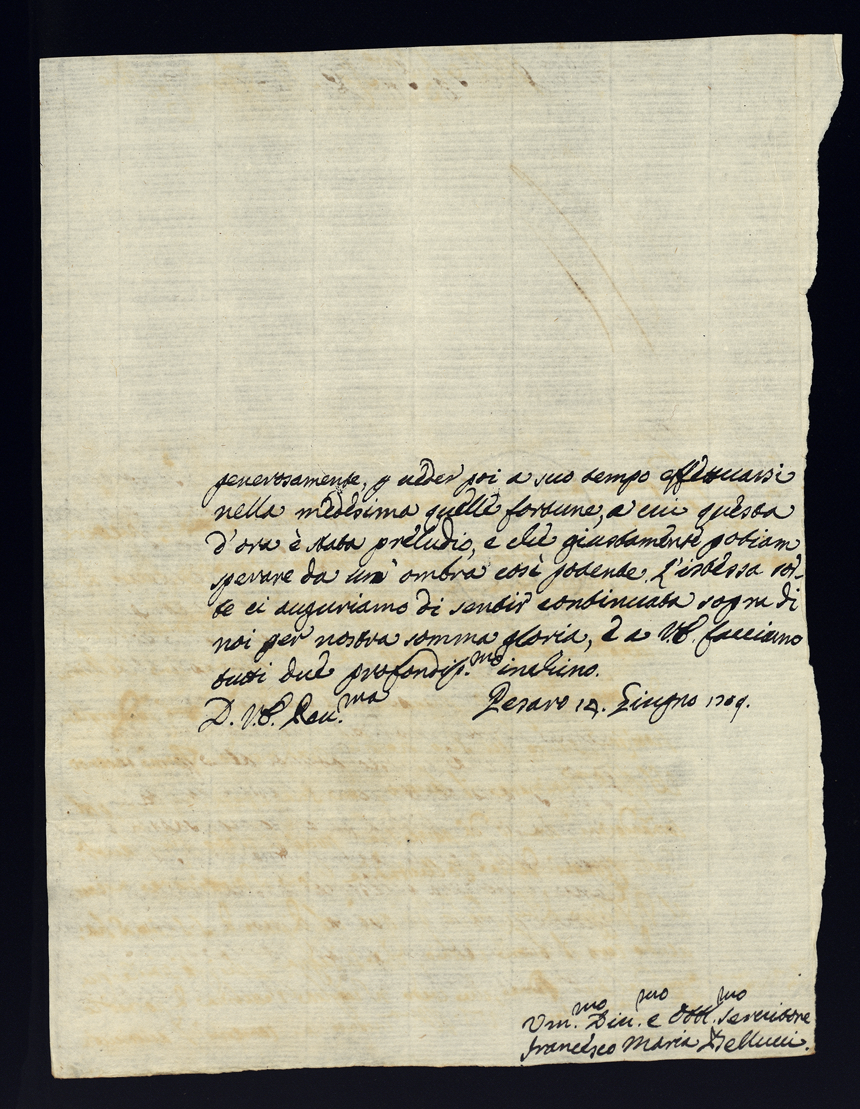 generosamente, p veder poi a suo tempo effettuarsi
nella medesima quelle fortune, a cui questa
d'ora è stata preludio, e che giustamente potiam
sperare da un' ombra così potente. L'istessa sor-
te ci auguriamo di sentir continuata sopra di
noi per nostra somma gloria, e a VS. facciamo
tutti due profondiss.mo inchino.
D. VS. Rev.ma Pesaro 14. Giugno 1709.
Um.mo Div.mo e Obbl.mo Servitore
Francesco Maria Bellucci.